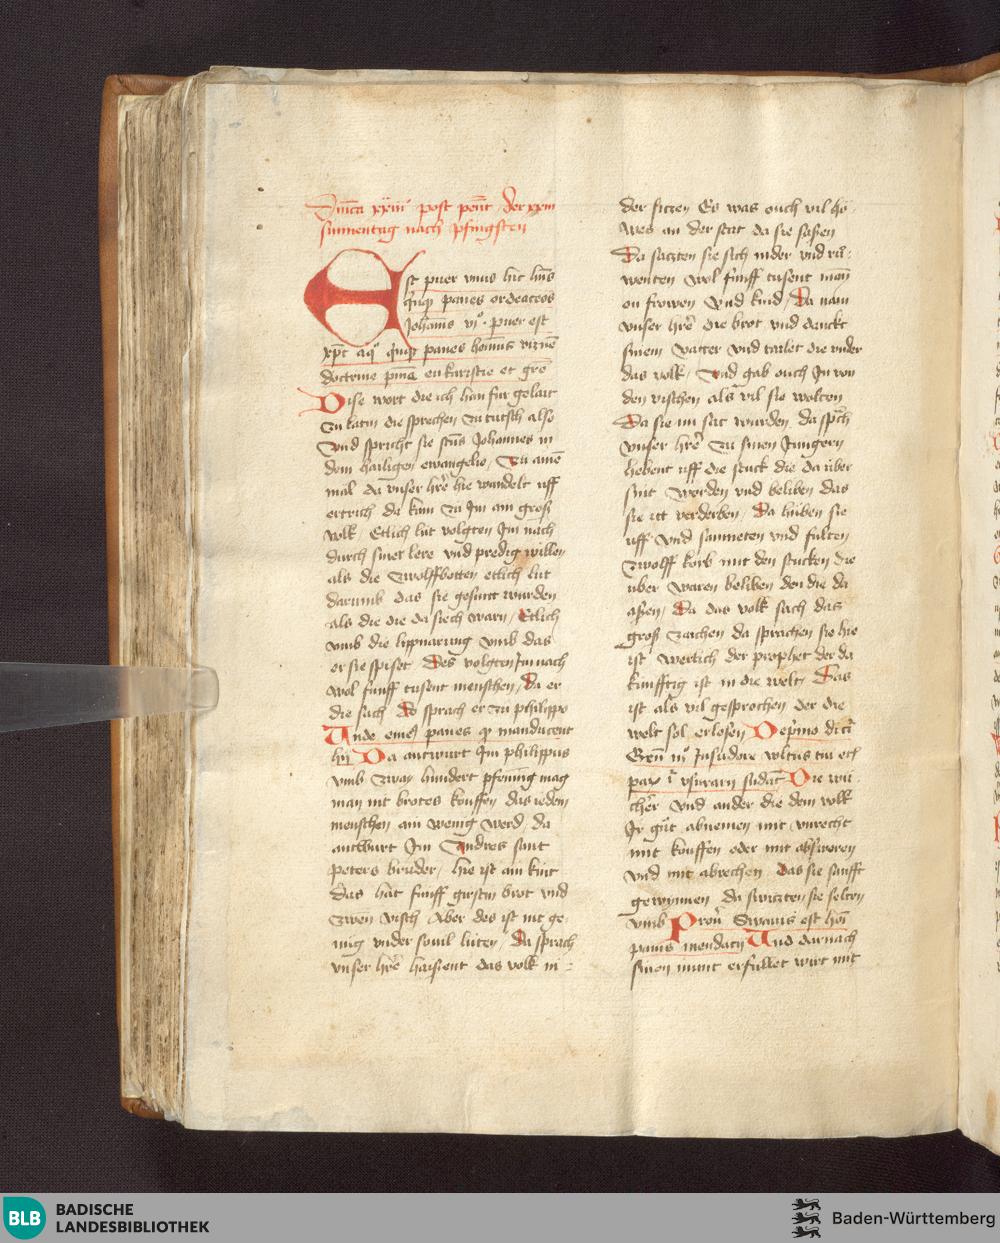 Dnica xxiii post pent der xxiii
sunnentag nach pfingsten
Est puer unus hic hns
quinq panes ordeaceos
Johanis vi° puer est
xpc a quo quinq panes homis
doctrine eukaristie et gre
Dise wort die ich han fur gelait
zu latin die sprechen zu tutsch also
vnd spricht sie sctus Johannes in
dem hailigen ewangelio / Zu aine
mal da vnser hre hie wandelt uff
ertrich da kam zu Jm ain groß
volk / Etlich lut volgten Jm nach
durch siner lere vnd predig willen
als die zwolffbotten etlich lut
darumb das sie gesunt wurden
als die die da siech warn / Etlich
vmb die lippnarung vmb das
er sie spiset Des volgten Jm nach
wol funff tusent menschen / Da er
die sach do sprach er zu philippo
Unde emes panes ut manducent
hij Da antwurt Jm philippus
vmb zway hundert pfening mag
man nit brotes kouffen das iedem
menschen ain wenig werd / da
antwurt Jm Andres sant
peters bruder / hie ist ain kint
das hat funff girstin brot vnd
zwen visch Aber des ist nit ge
nug vnder souil luten / da sprach
vnser hre haissent das volk ni
der sitzen Es was ouch vil ho
wes an der stat da sie sassen
Da satzten sie sich nider vnd
wol funff tusent man
on frowen vnd kind / Da nam
vnser hre die brot vnd danckt
sinem vatter vnd tailet die vnder
das volk / vnd gab ouch Jn von
den vischen als vil sie wolten
Da sie nu sat wurden da spch
vnser hre zu sinen Jungern
hebent uff die stuck die da uber
sint worden vnd beliben das
sie nit verderben / Da huben sie
uff vnd samneten vnd fulten
zwolff korb mit den stucken die
uber waren beliben den die da
assen / Da das volk sach das
groß zaichen da sprachen sie hie
ist werlich der prophet der da
kunfftig ist in die welt / Das
ist als vil gesprochen der die
welt sol erlosen De pmo dicit
Gen iii° In sudore vultus tui
Die wu
cher vnd ander die dem volk
Jr gut abnemen mit vnrecht
mit kouffen oder mit
vnd mit abrechen das sie sanfft
gewynnen da switzten sie selten
vmb Prou Swauis est hoi
panis mendacij Und darnach
sinen munt erfullet wirt mit
BLB
BADISCHE
LANDESBIBLIOTHEK
Baden-Württemberg